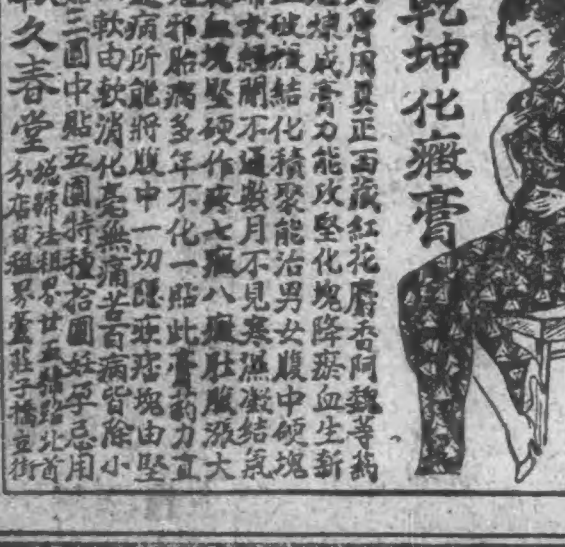 乾坤化癥膏
膏用真正西藏紅花麝香阿魏等葯
成膏力能攻堅化塊降瘀血生新
破癥結化積聚能治男女腹中硬塊
女經閉不通數月不見寒濕凝結氣
血塊堅硬作疼七癥八瘕肚腹漲大
邪胎病多年不化一貼此膏葯力直
病所能將腹中一切症痞塊由堅
軟由軟消化毫無痛苦百病皆除小
三圓中貼五圓特種拾圓妊孕忌用
久春堂
總號法租界廿五號路北首
分店日租界蘆莊子橋立街